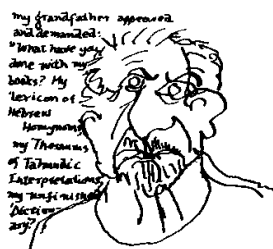 my grandfather appeared
and demanded:
"What have you
done with my
books? My
Lexicon of
Hebrew
Homonyms,
my Thesaurus
of Talmudic
Interpretations,
my unfinished
Diction-
ary?